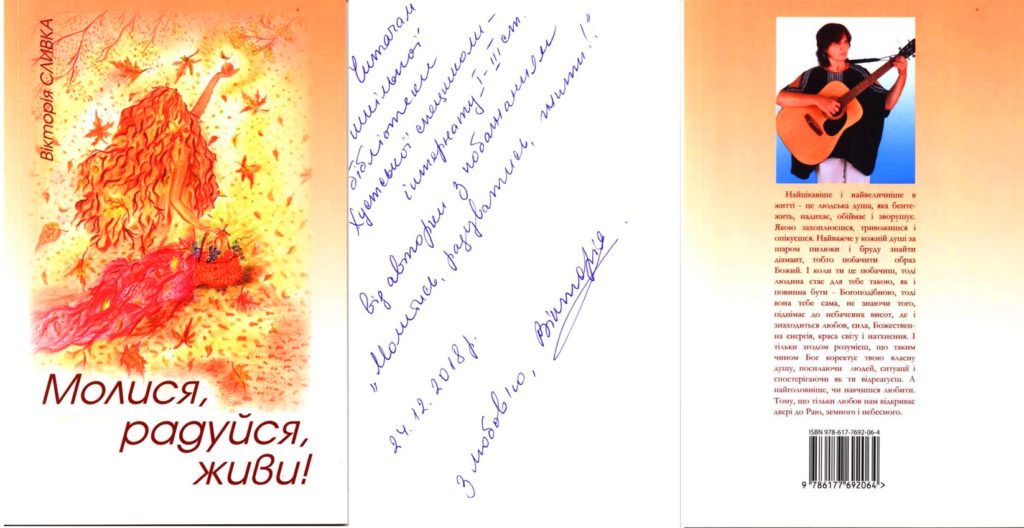 Вікторія СЛИВКА
Молися,
радуйся,
живи!
Читачам
шкільної
бібліотеки
Хустської спецшколи-
інтернату I-III ст.
від авторки з побажанням
"Молитись, радуватись, жити!"
24.12.2018 р.
З любов'ю, Вікторія
Найцікавіше і найвеличніше в
житті - це людська душа, яка бенте-
жить, надихає, обіймає і зворушує.
Якою захоплюєшся, тривожишся і
опікуєшся. Найважче у кожній душі за
шаром пилюки і бруду знайти
діамант, тобто побачити образ
Божий. І коли ти це побачиш, тоді
людина стає для тебе такою, як і
повинна бути - Богоподібною, тоді
вона тебе сама, не знаючи того,
піднімає до небачених висот, де і
знаходиться любов, сила, Божествен-
на енергія, краса світу і натхнення. І
тільки згодом розумієш, що таким
чином Бог коректує твою власну
душу, посилаючи людей, ситуації і
спостерігаючи як ти відреагуєш. А
найголовніше, чи навчишся любити.
Тому, що тільки любов нам відкриває
двері до Раю, земного і небесного.
ISBN 978-617-7692-06-4
9 786177 692064 >